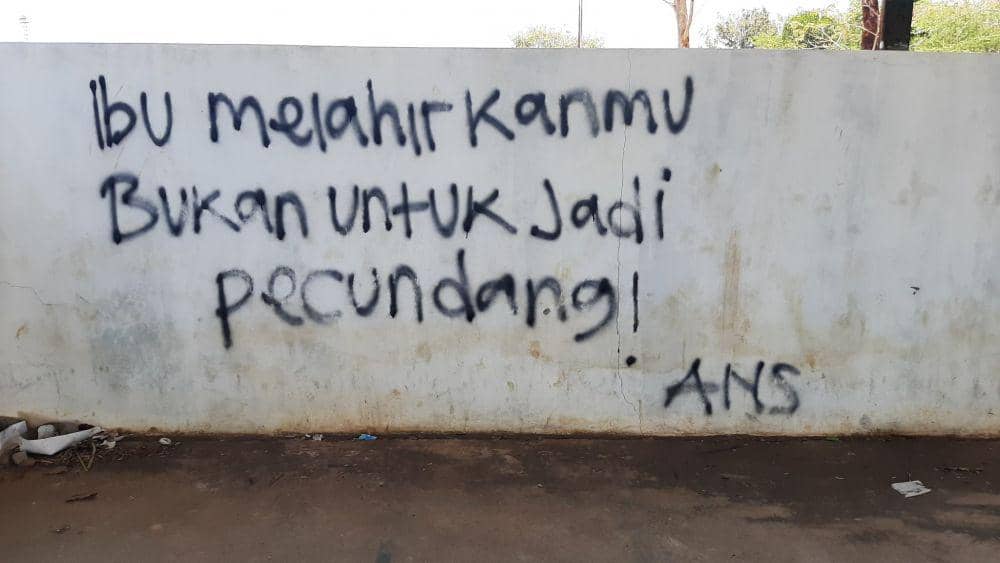 Ibu melahirkanmu
Bukan untuk Jadi
pecundang!
ANS